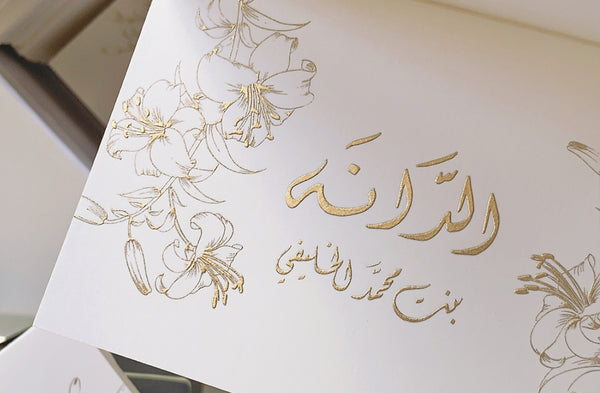 الدَّانَه
بنت محمَّد الخليفي